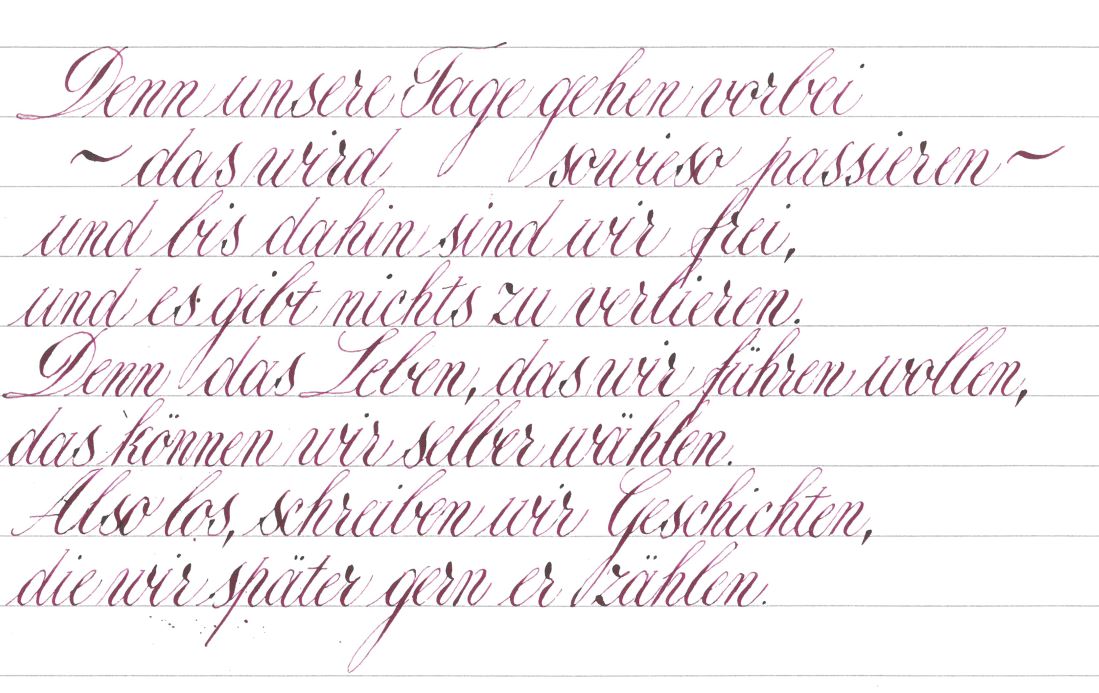 Denn unsere Tage gehen vorbei
~ das wird sowieso passieren ~
und bis dahin sind wir frei,
und es gibt nichts zu verlieren.
Denn das Leben, das wir führen wollen,
das können wir selber wählen.
Also los, schreiben wir Geschichten,
die wir später gern er zählen.